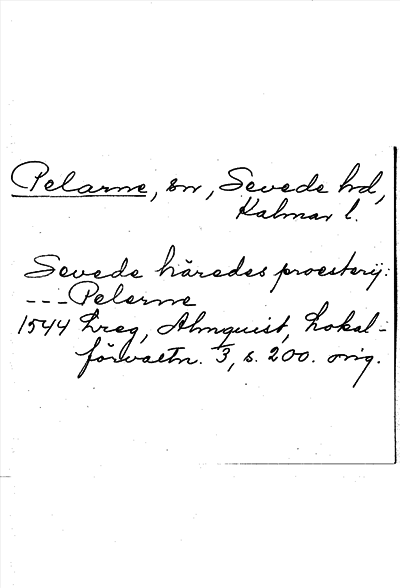 Pelarne, sn, Sevede hd,
Kalmar l.
Sevede häredes proesterij:
--- Pelerne
1544 Lreg, Almquist, Lokal-
förvaltn. 1/3, s. 200. orig.